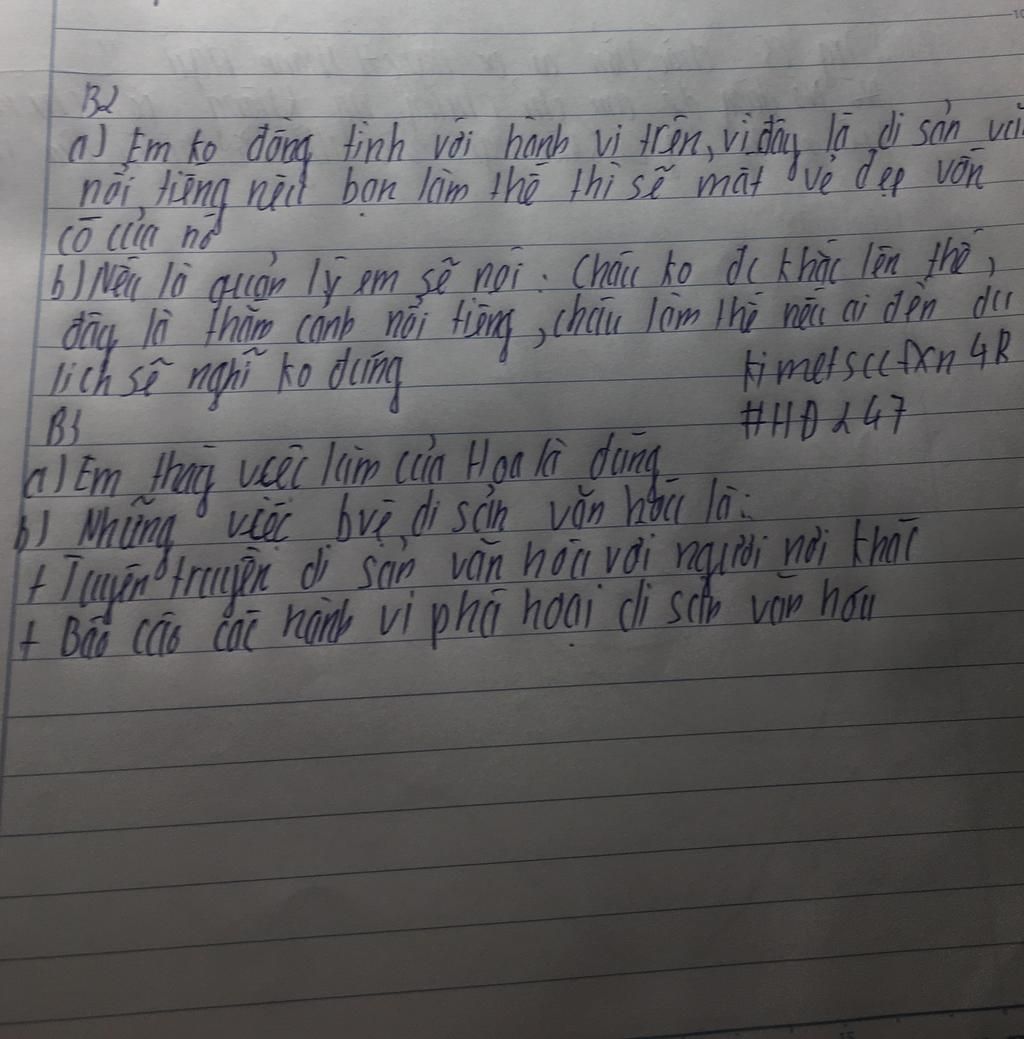 B2
a) Em ko đồng tình với hành vi trên, vì đây là di sản vừa
nổi tiếng nếu bạn làm thế thì sẽ mất vẻ đẹp vốn
có của nó
b) Nếu là quản lý em sẽ nói: Cháu ko đc khắc lên thế,
đây là thắm cảnh nổi tiếng, cháu làm thế nếu ai đến du
lịch sẽ nghĩ ko đúng
kimetsccfxn4R
#HĐ247
B3
a) Em thấy việc làm của Hoa là đúng
b) Những việc bvệ di sản văn hóa là:
+ Tuyên truyền di sản văn hóa với người nơi khác
+ Báo cáo các hành vi phá hoại di sản văn hóa